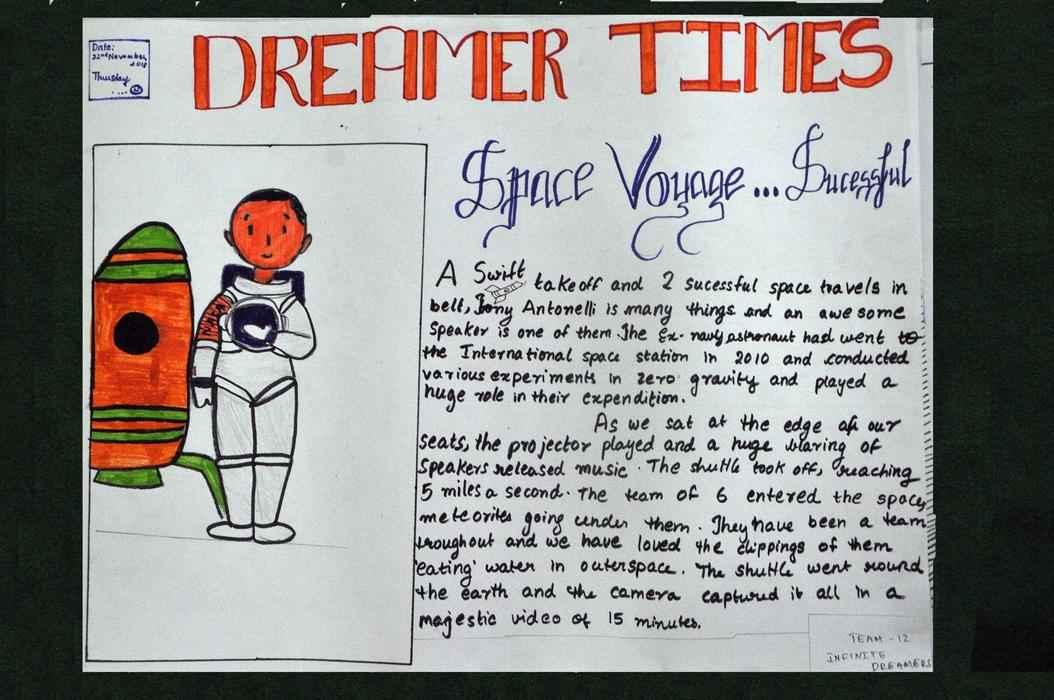 Date:
22nd November
2018
Thursday
DREAMER TIMES
Space Voyage... Sucessful
A Swift takeoff and 2 sucessful space travels in
belt, Tony Antonelli is many things and an awesome
speaker is one of them. The Ex-navy astronaut had went to
the International space station in 2010 and conducted
various experiments in zero gravity and played a
huge role in their expendition.
As we sat at the edge of our
seats, the projector played and a huge blaring of
speakers released music. The shuttle took off, reaching
5 miles a second. The team of 6 entered the space,
meteorites going under them. They have been a team
troughout and we have loved the clippings of them
'eating' water in outerspace. The shuttle went round
the earth and the camera captured it all in a
majestic video of 15 minutes.
TEAM - 12
INFINITE
DREAMERS